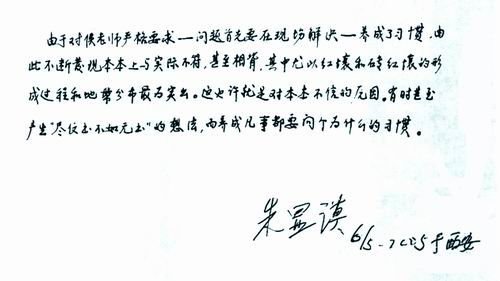 由于对侯老师严格要求—问题首先要在现场解决—养成了习惯，由
此不断发现本本上与实际不符，甚至相背，其中尤以红壤和砖红壤的形
成过程和地带分布最为突出。这也许就是对本本不信的原因。有时甚至
产生“尽信书不如无书”的想法，而养成凡事都要问个为什么的习惯。
朱显谟
6/5-2005于西安